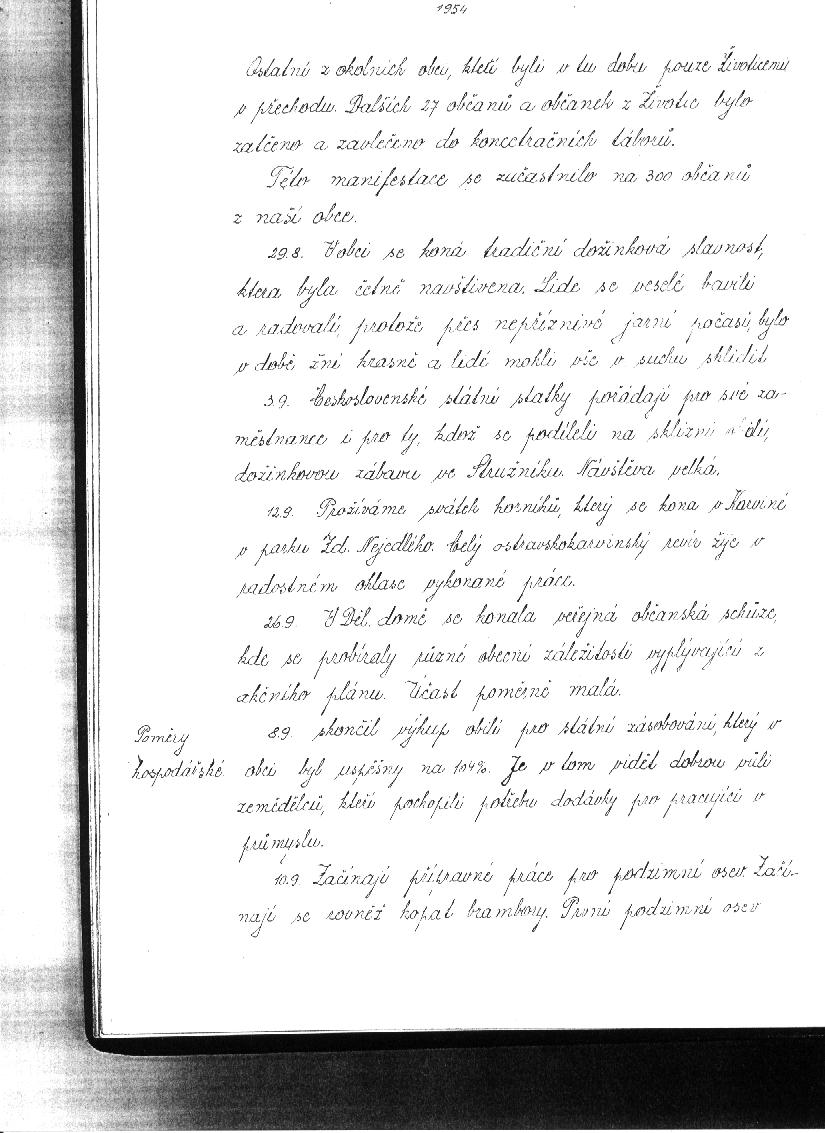 1954
Ostatní z okolních obcí, kteří byli v tu dobu pouze Životicemi
v přechodu. Dalších 27 občanů a občanek z Životic bylo
zatčeno a zavlečeno do koncetračních táborů.
Této manifestace se zučastnilo na 300 občanů
z naší obce.
29.8. V obci se koná tradiční dožinková slavnost,
ktera byla četně navštivena. Lide se veselé bavili
a radovali, protože přes nepříznivé jarní počasí, bylo
v době žní krasně a lidé mohli vše v suchu sklidit
3.9. Československé státní statky pořádají pro své za-
městnance i pro ty, kdož se podíleli na sklizni
dožinkovou zábavu ve Stružníku. Návštěva velká.
12.9. Prožíváme svátek horníků, který se kona v Karviné
v parku Zd. Nejedlého. Celý ostravskokarvinský revír žije v
radostném ohlase vykonané práce.
26.9. V Děl. domě se konala veřejná občanská schůze,
kde se probíraly různé obecní záležitosti vyplývající z
akčního plánu. Účast poměrně malá.
Poměry
hospodářské
8.9. skončil výkup obilí pro státní zásobování, který v
obci byl uspěšny na 104%. Je v tom vidět dobrou vůli
zemědělců, kteří pochopili potřebu dodávky pro pracující v
průmyslu.
10.9. Začínají přípravné práce pro podzimní osev. Začí-
nají se rovněž kopat brambory. První podzimní osev